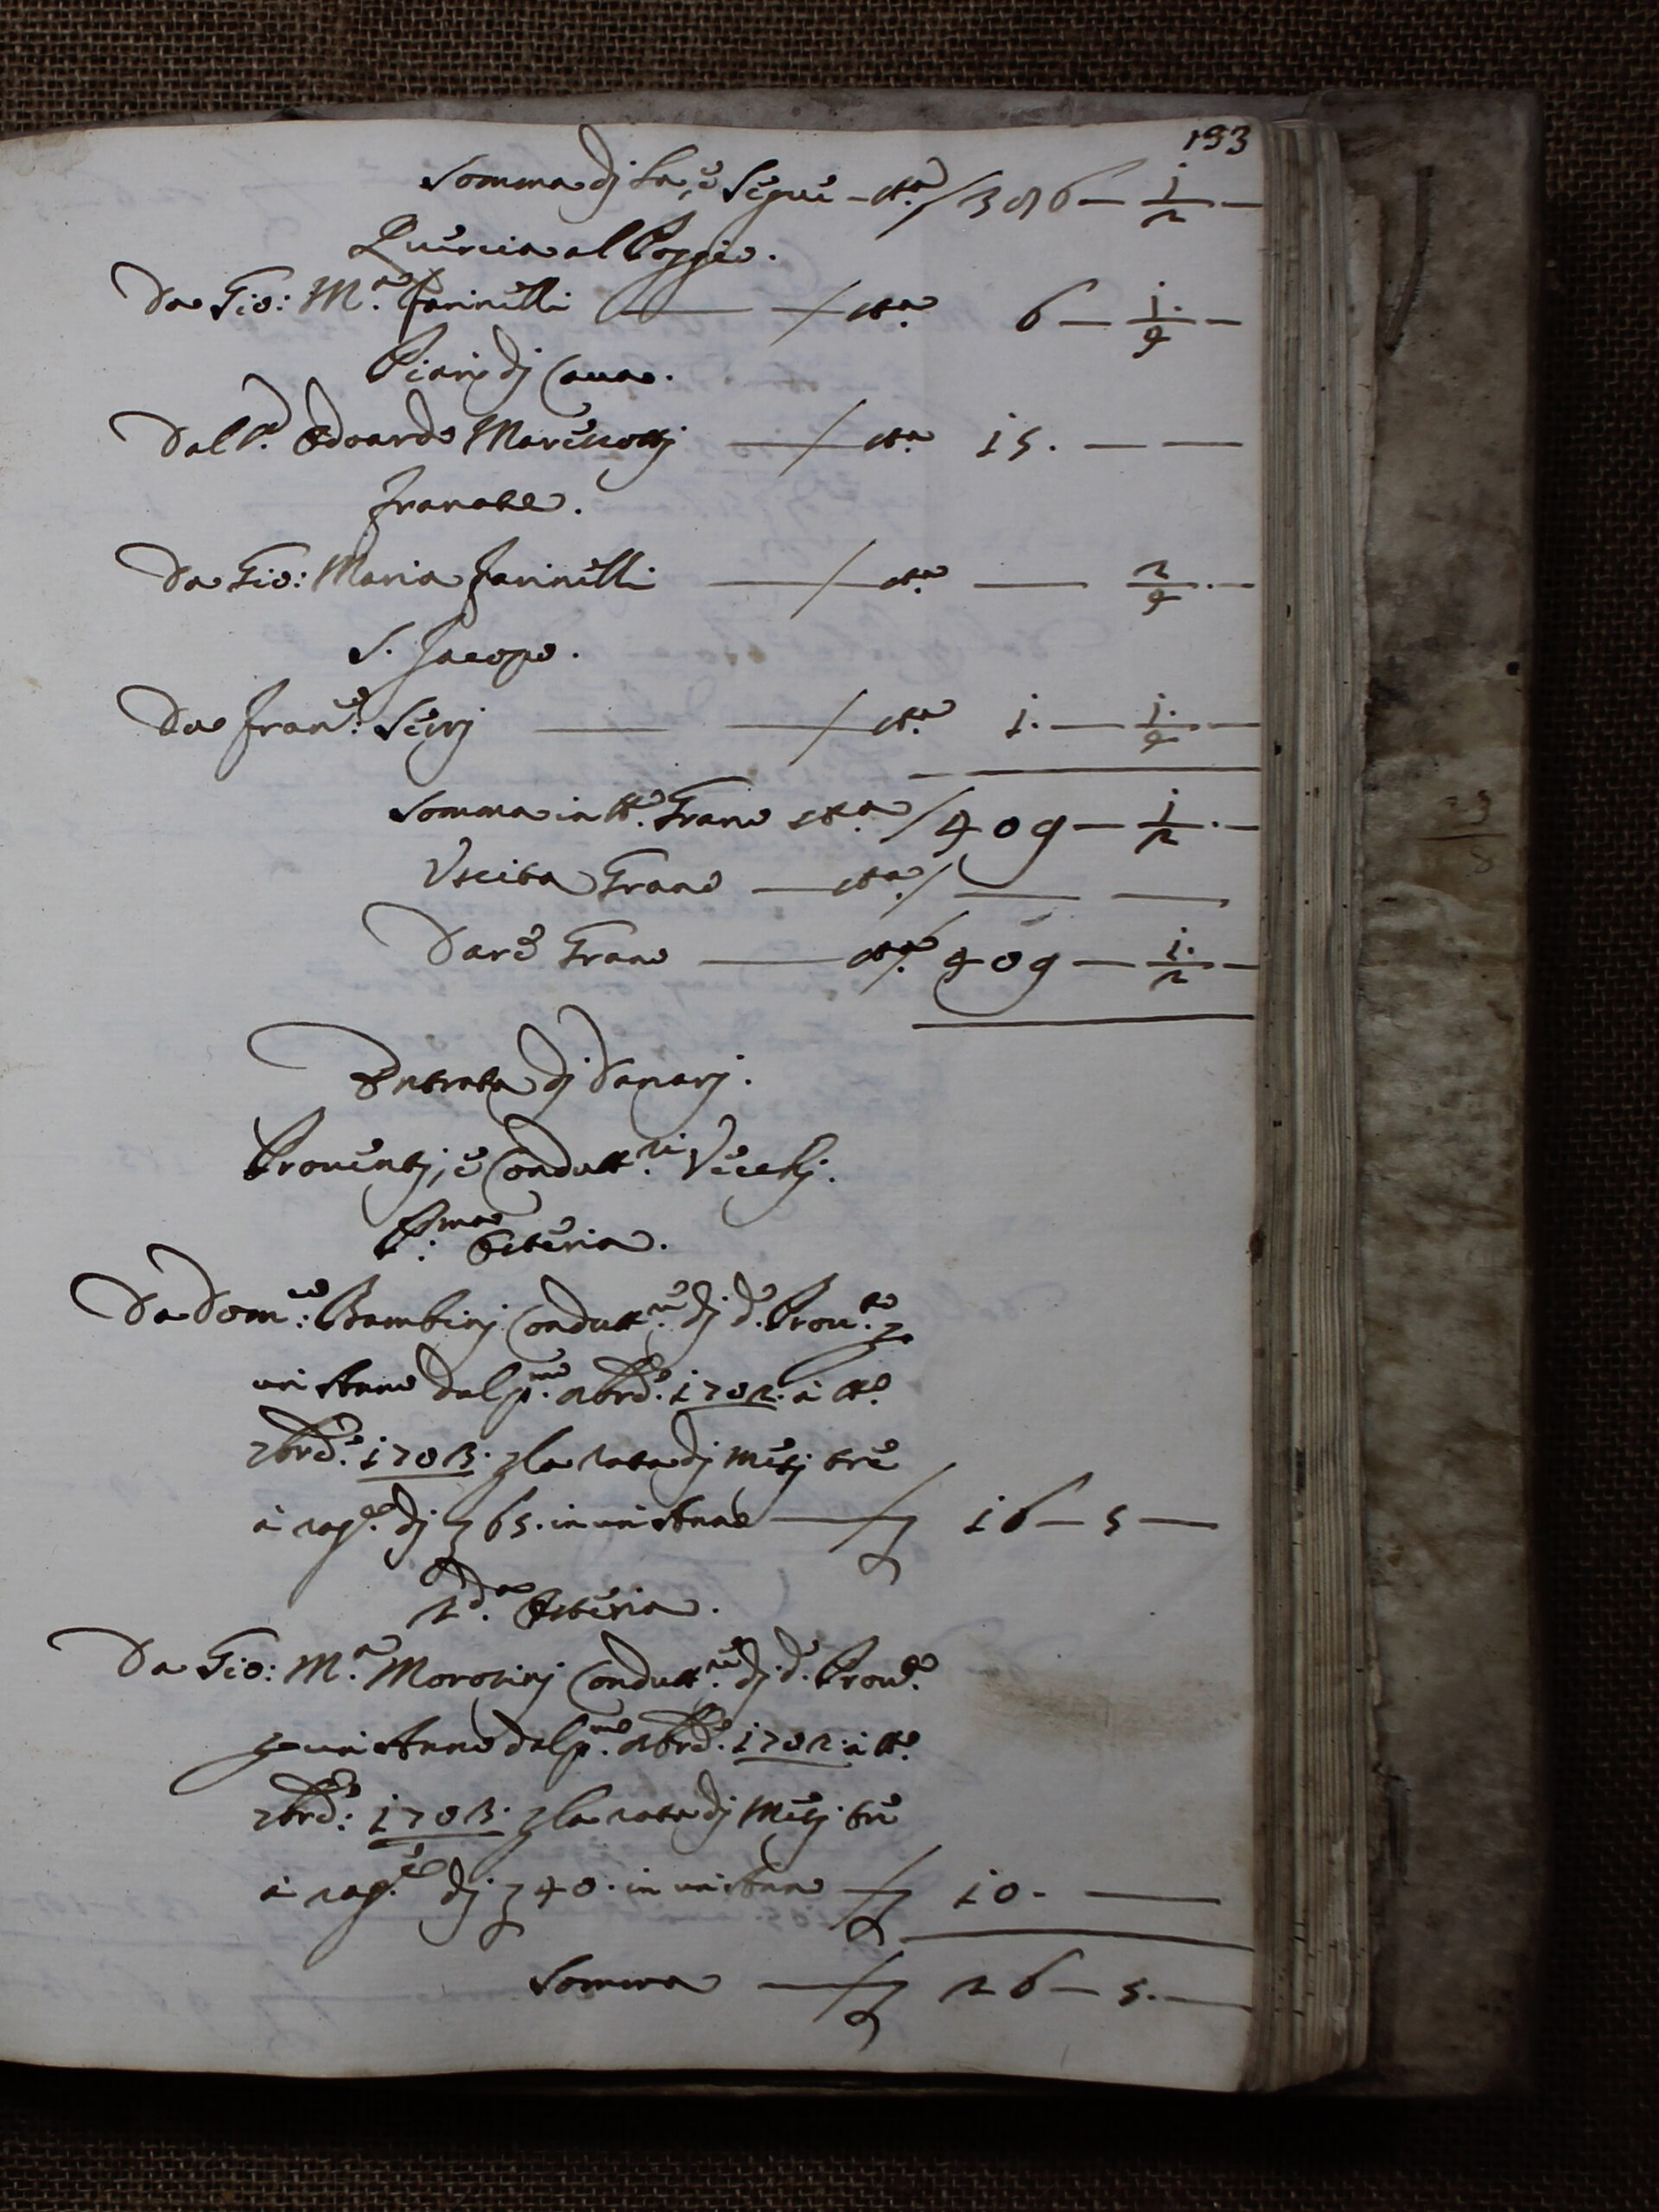 193
Somma di La, e Segue – sta / 386 – 1/2 –
Quercia al Poggio.
Da Gio: M.a Farinelli — / — sta 6 – 1/4 –
Piani di Caua.
Dal S.r Edoardo Marescotti — / — sta 15. — —
Franate.
Da Gio: Maria Farinelli — / — sta — 2/4 . –
S. Jacopo.
Da Fran.co Serj — — / — sta 1. — 1/4 –
Somma in tt.o Grano sta / 409 – 1/2 . –
Vscita Grano — sta / — —
Dare Grano — sta / 409 – 1/2 –
Entrata di Danarj.
Prouentj, e Condutt.ri Vecchj.
P.ma Osteria.
Da Dom.co Bambinj Condutt.re dj d.o Prou.to p
un Anno dal p.mo 8bre 1702. à tt.o
7bre 1703. p la rata dj Mesj tre
à rag.e dj 65. in un Anno — / 16 – 5 —
2.da Osteria.
Da Gio: M.a Morosinj Condutt.re dj d.o Prou.o
p un Anno dal p.mo 8bre 1702. à tt.o
7bre: 1703. p la rata dj Mesj tre
à rag.e dj 40. in un Anno — / 10. —
Somma — / 26 – 5. —